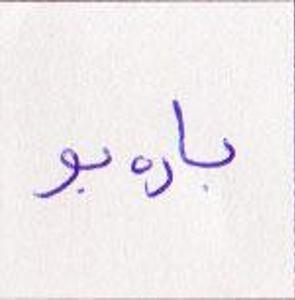 باره بو